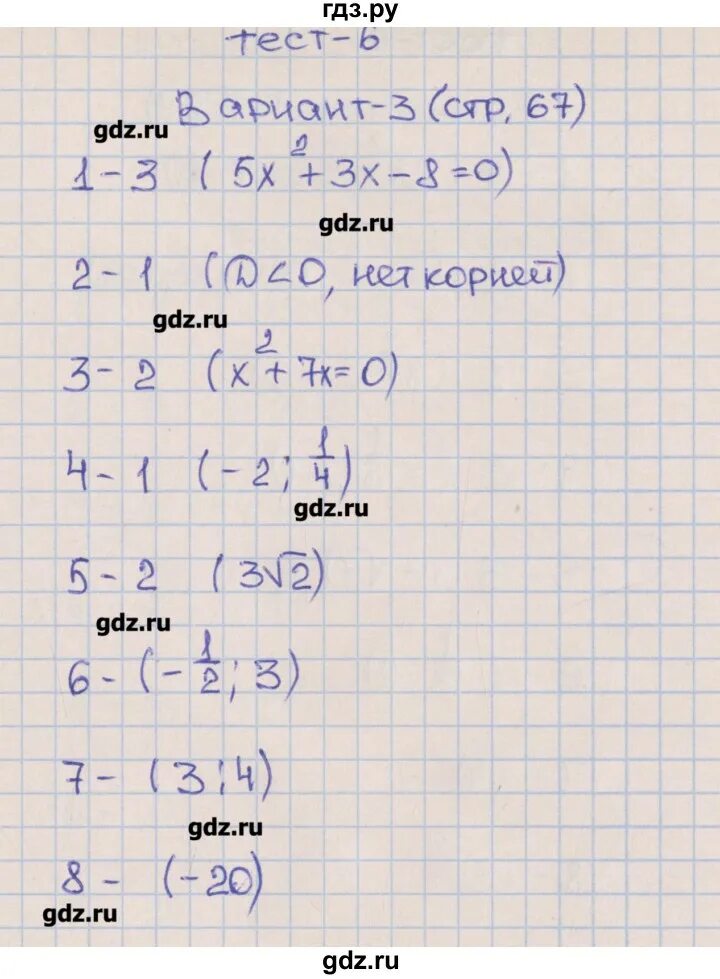 гдз.ру
тест-6
Вариант-3 (стр. 67)
gdz.ru
1 - 3 ( 5x² + 3x - 8 = 0)
gdz.ru
2 - 1 (D < 0, нет корней)
gdz.ru
3 - 2 (x² + 7x = 0)
4 - 1 (-2; 1/4)
gdz.ru
5 - 2 (3√2)
gdz.ru
6 - (-1/2; 3)
7 - (3; 4)
gdz.ru
8 - (-20)
gdz.ru
gdz.ru